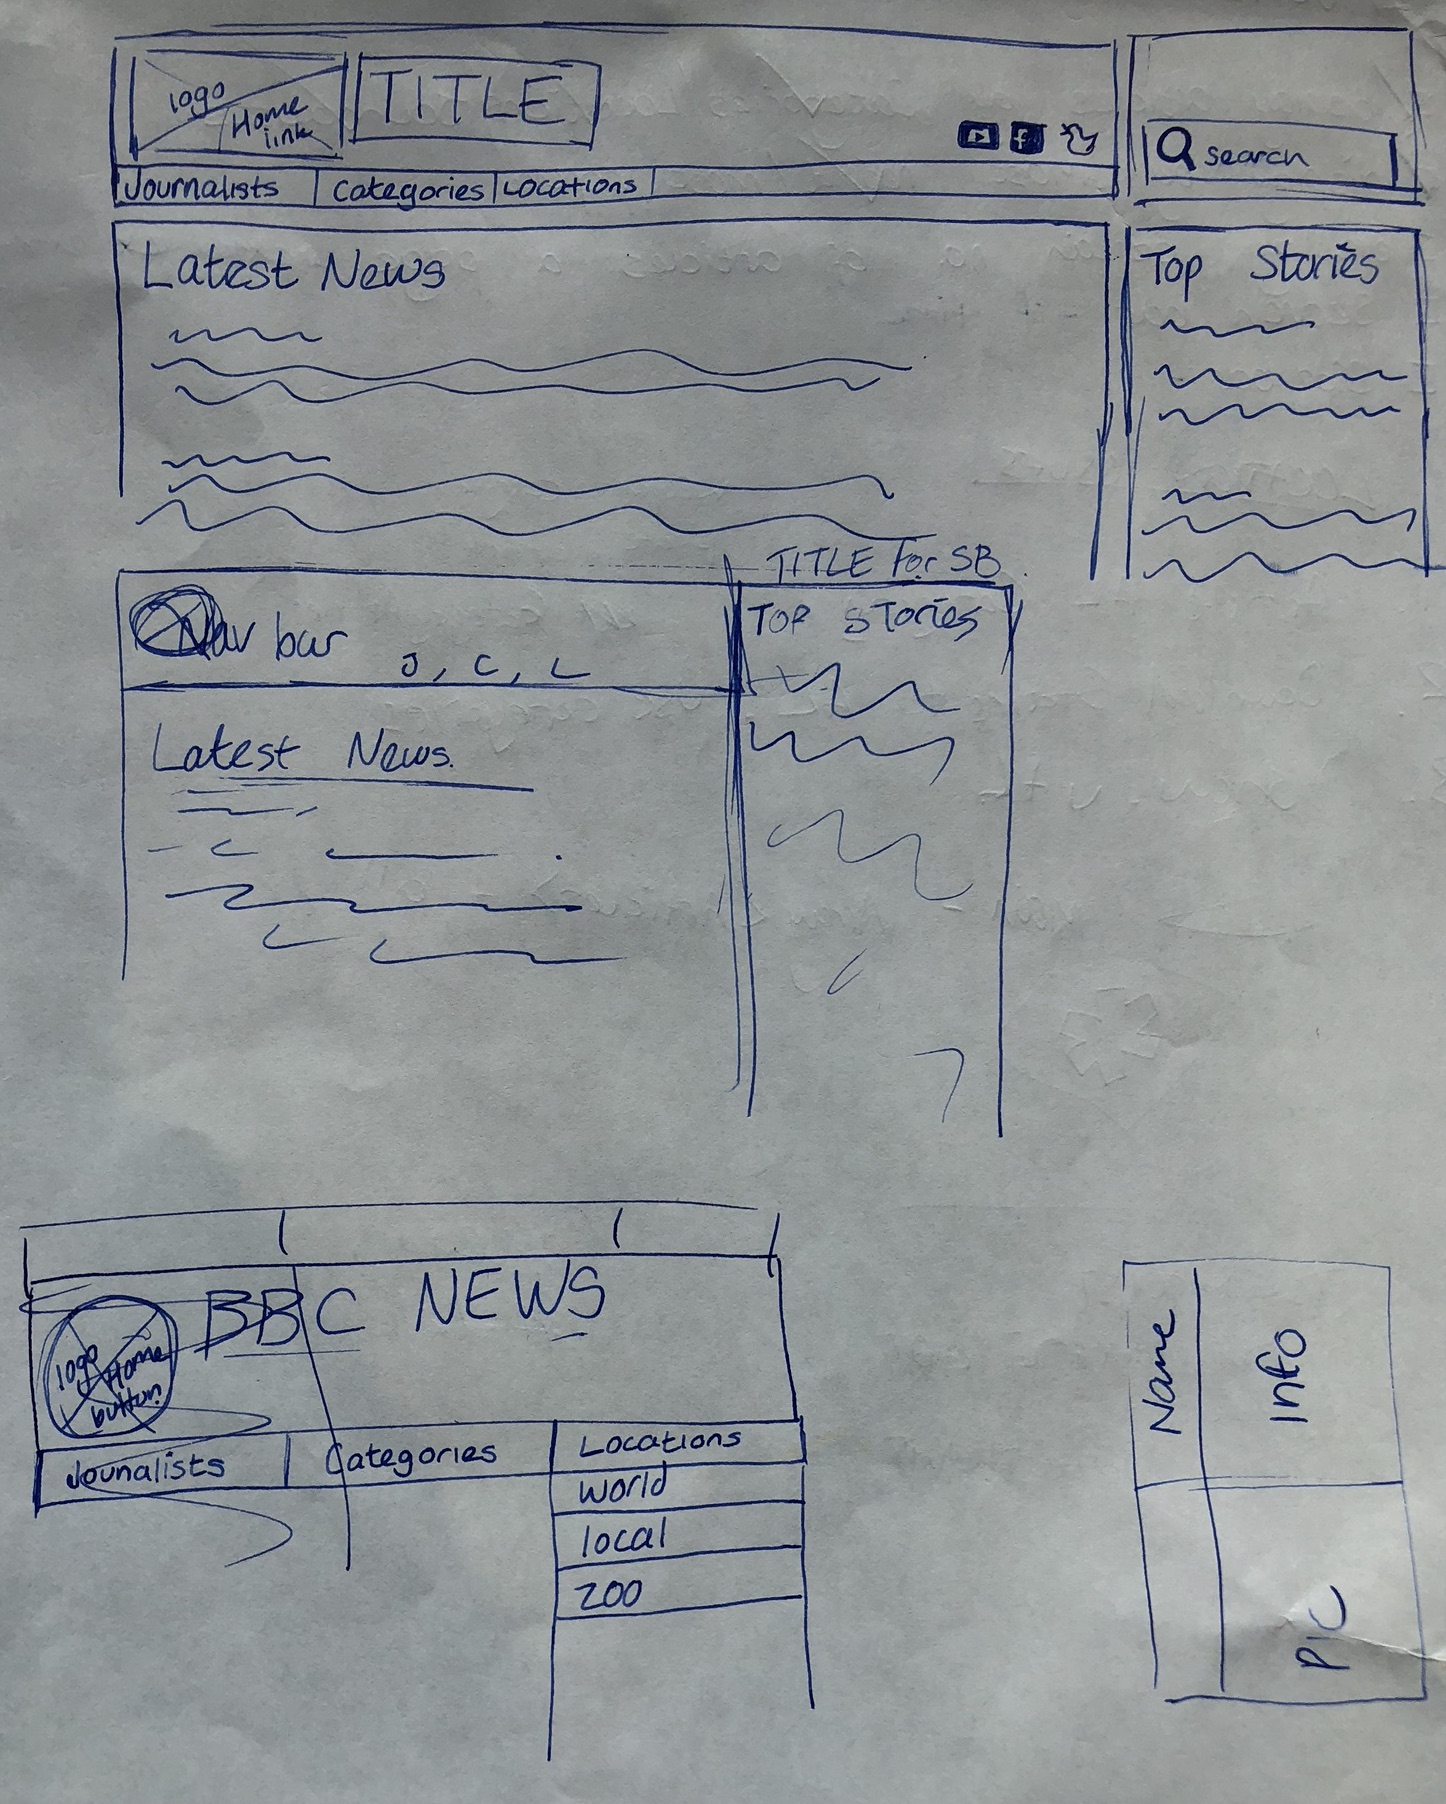 logo
Home
link
TITLE
search
Journalists
Categories
Locations
Latest News
Top Stories
TITLE For SB
Nav bar
J, C, L
TOP STories
Latest News.
BBC NEWS
logo
Home
button
Jounalists
Categories
Locations
world
local
zoo
Name
Info
PIC